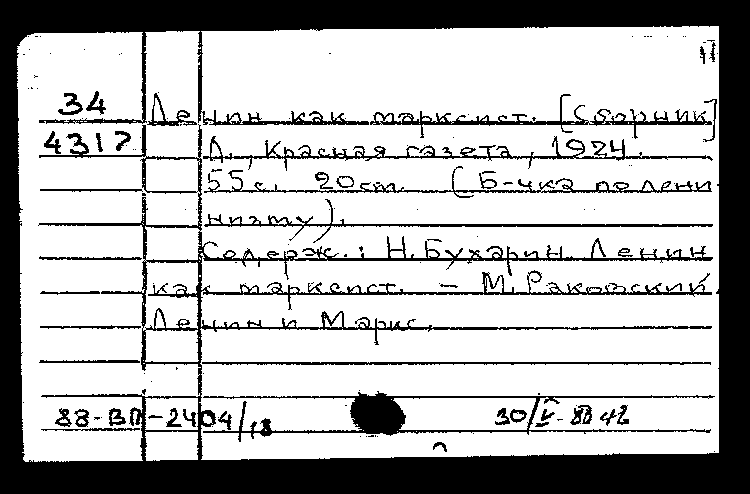 34 Ленин как марксист. [Сборник]
4317 Л., Красная газета, 1924.
55с. 20см. (Б-чка по лени-
низму).
Содерж.: Н. Бухарин. Ленин
как марксист. – М. Раковский.
Ленин и Маркс.
88-ВП-2404/13 30/V-88